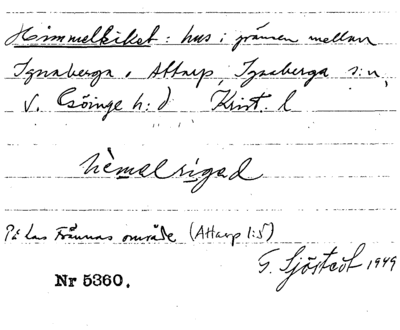 Himmelkiket: hus i gränsen mellan
Ignaberga o. Attarp, Ignaberga s:n,
V. Göinge h:d Krist. l
hèmalrigad
På Lars Frännas område (Attarp 1:5)
G. Sjöstedt 1949
Nr 5360.